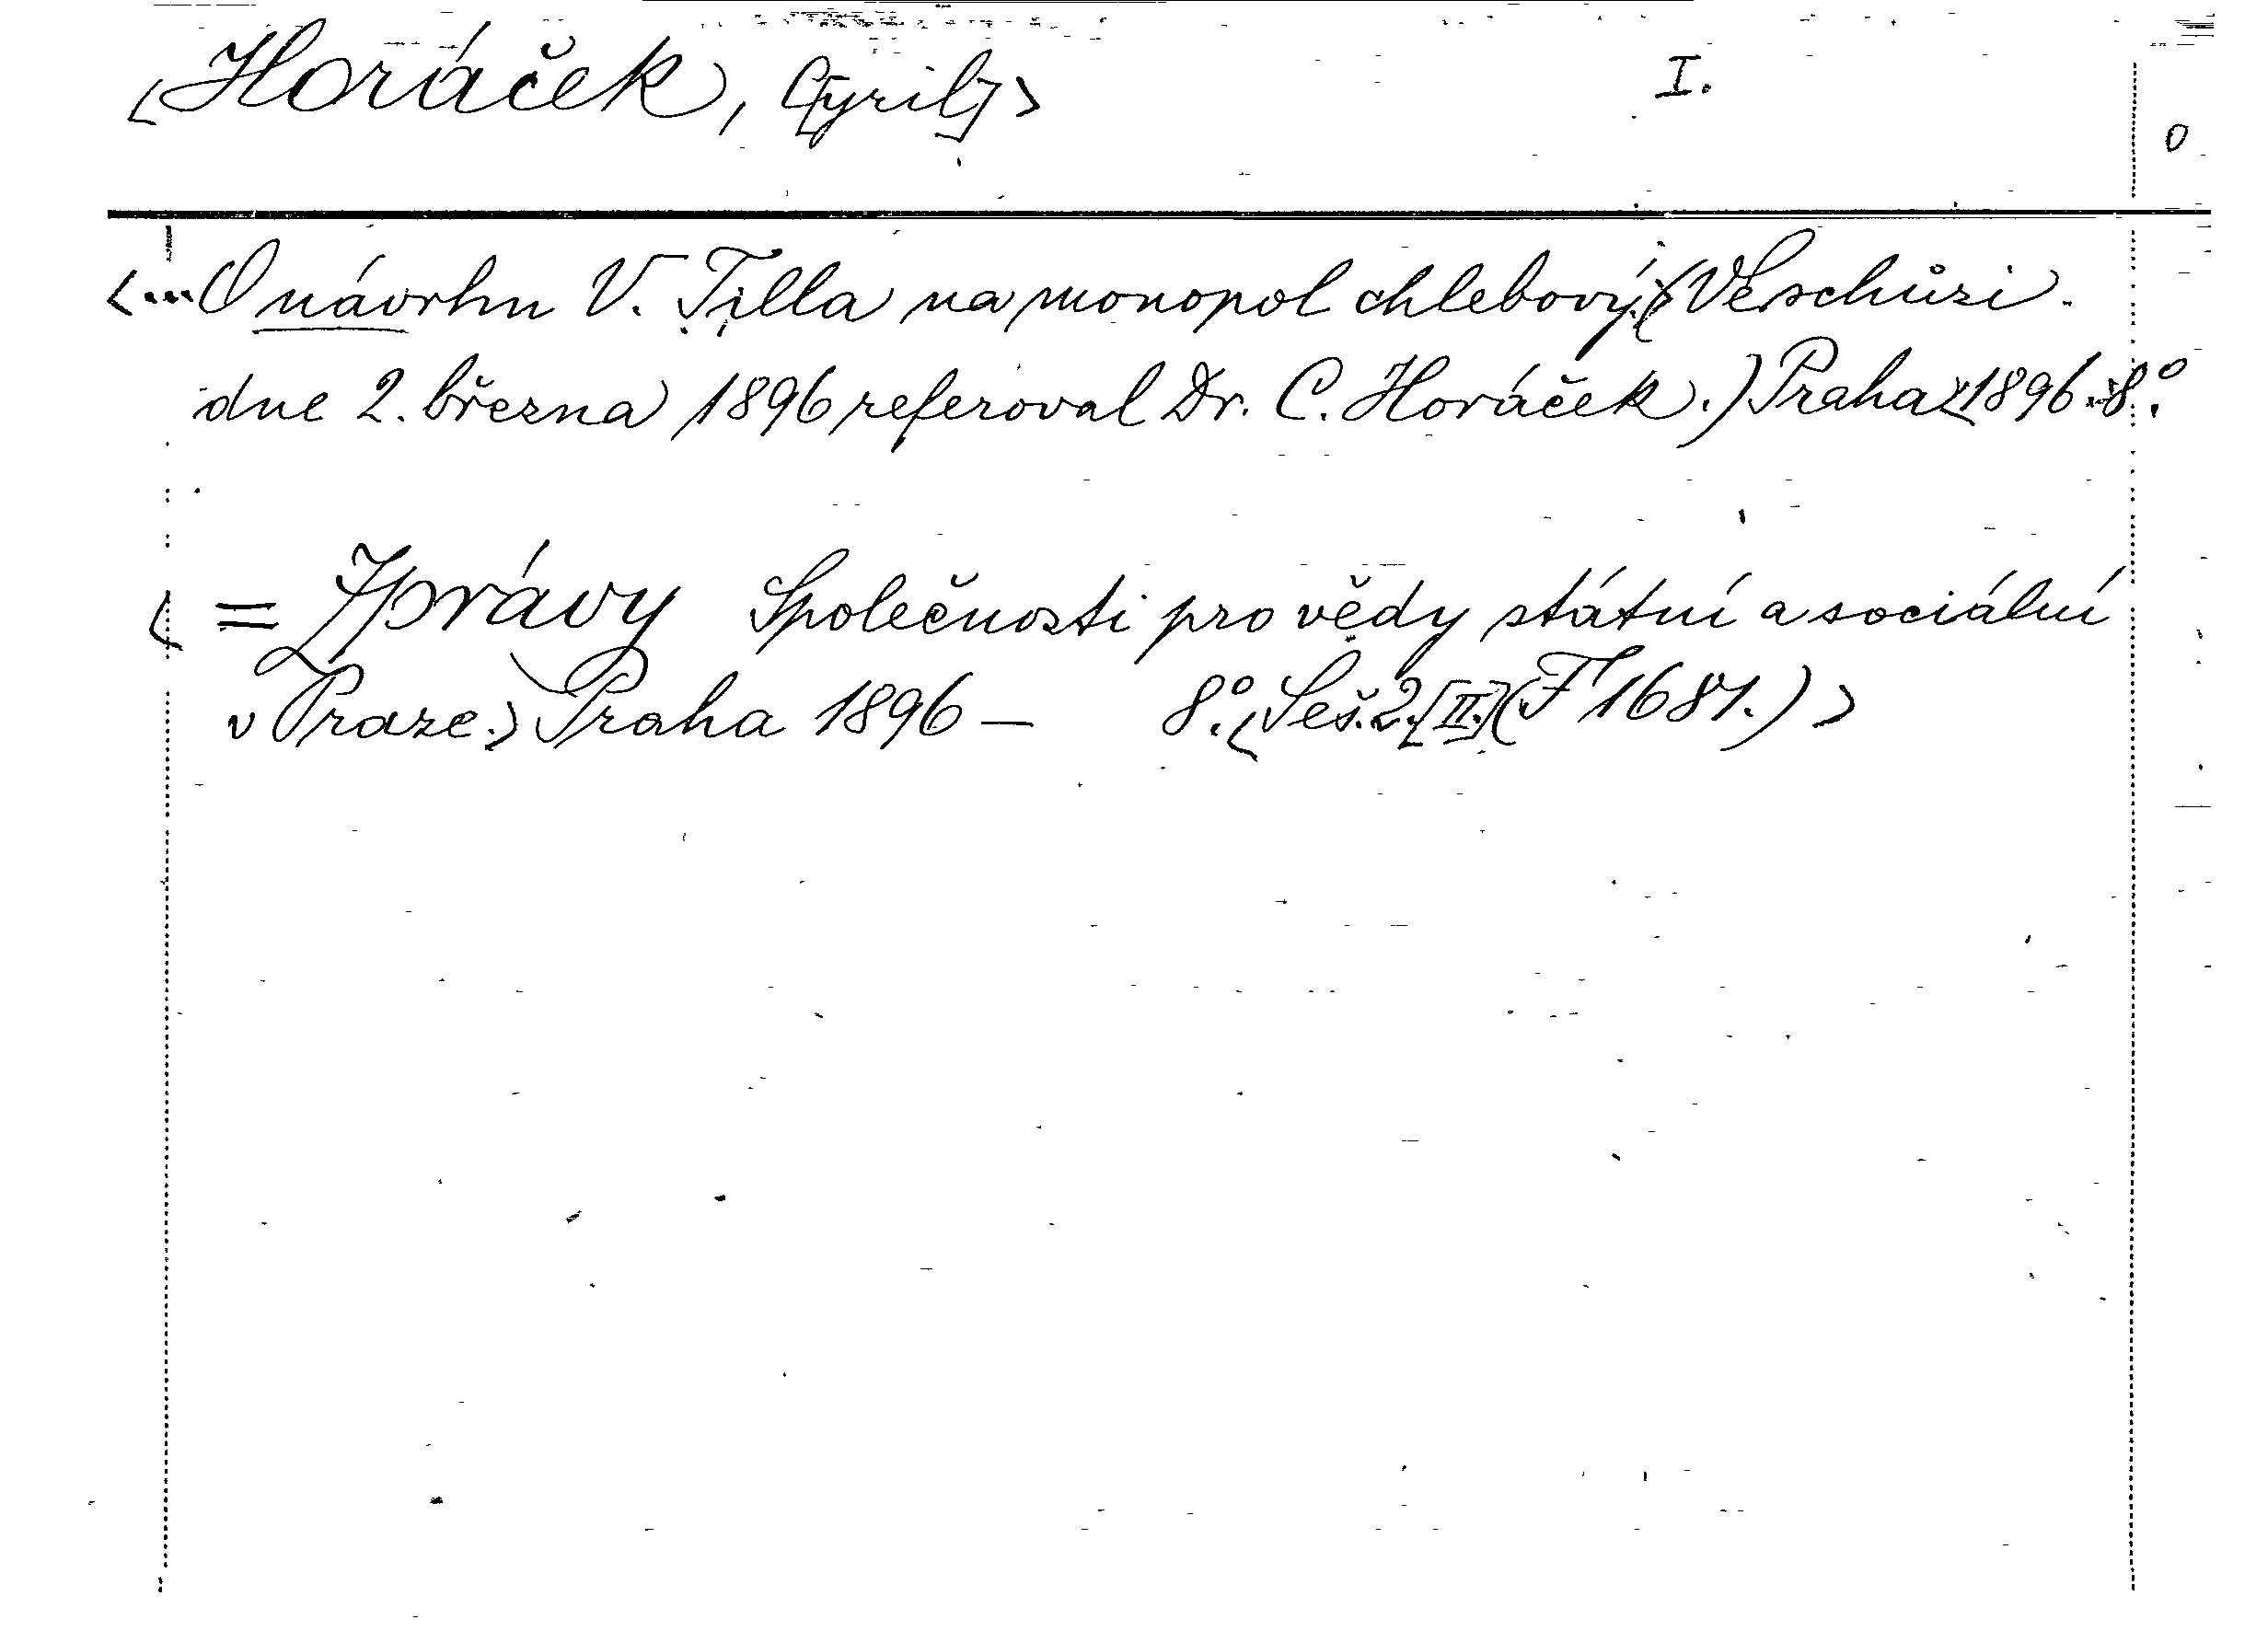 <Horáček, C[yril]> I. 0
<... O návrhu V. Tilla na monopol chlebový. (Ve schůzi
dne 2. března 1896 referoval Dr. C. Horáček.) Praha <1896.> 8°.
<= Zprávy Společnosti pro vědy státní a sociální
v Praze.> Praha 1896 — 8°. <Seš. 2. [II.] (F 1681.)>